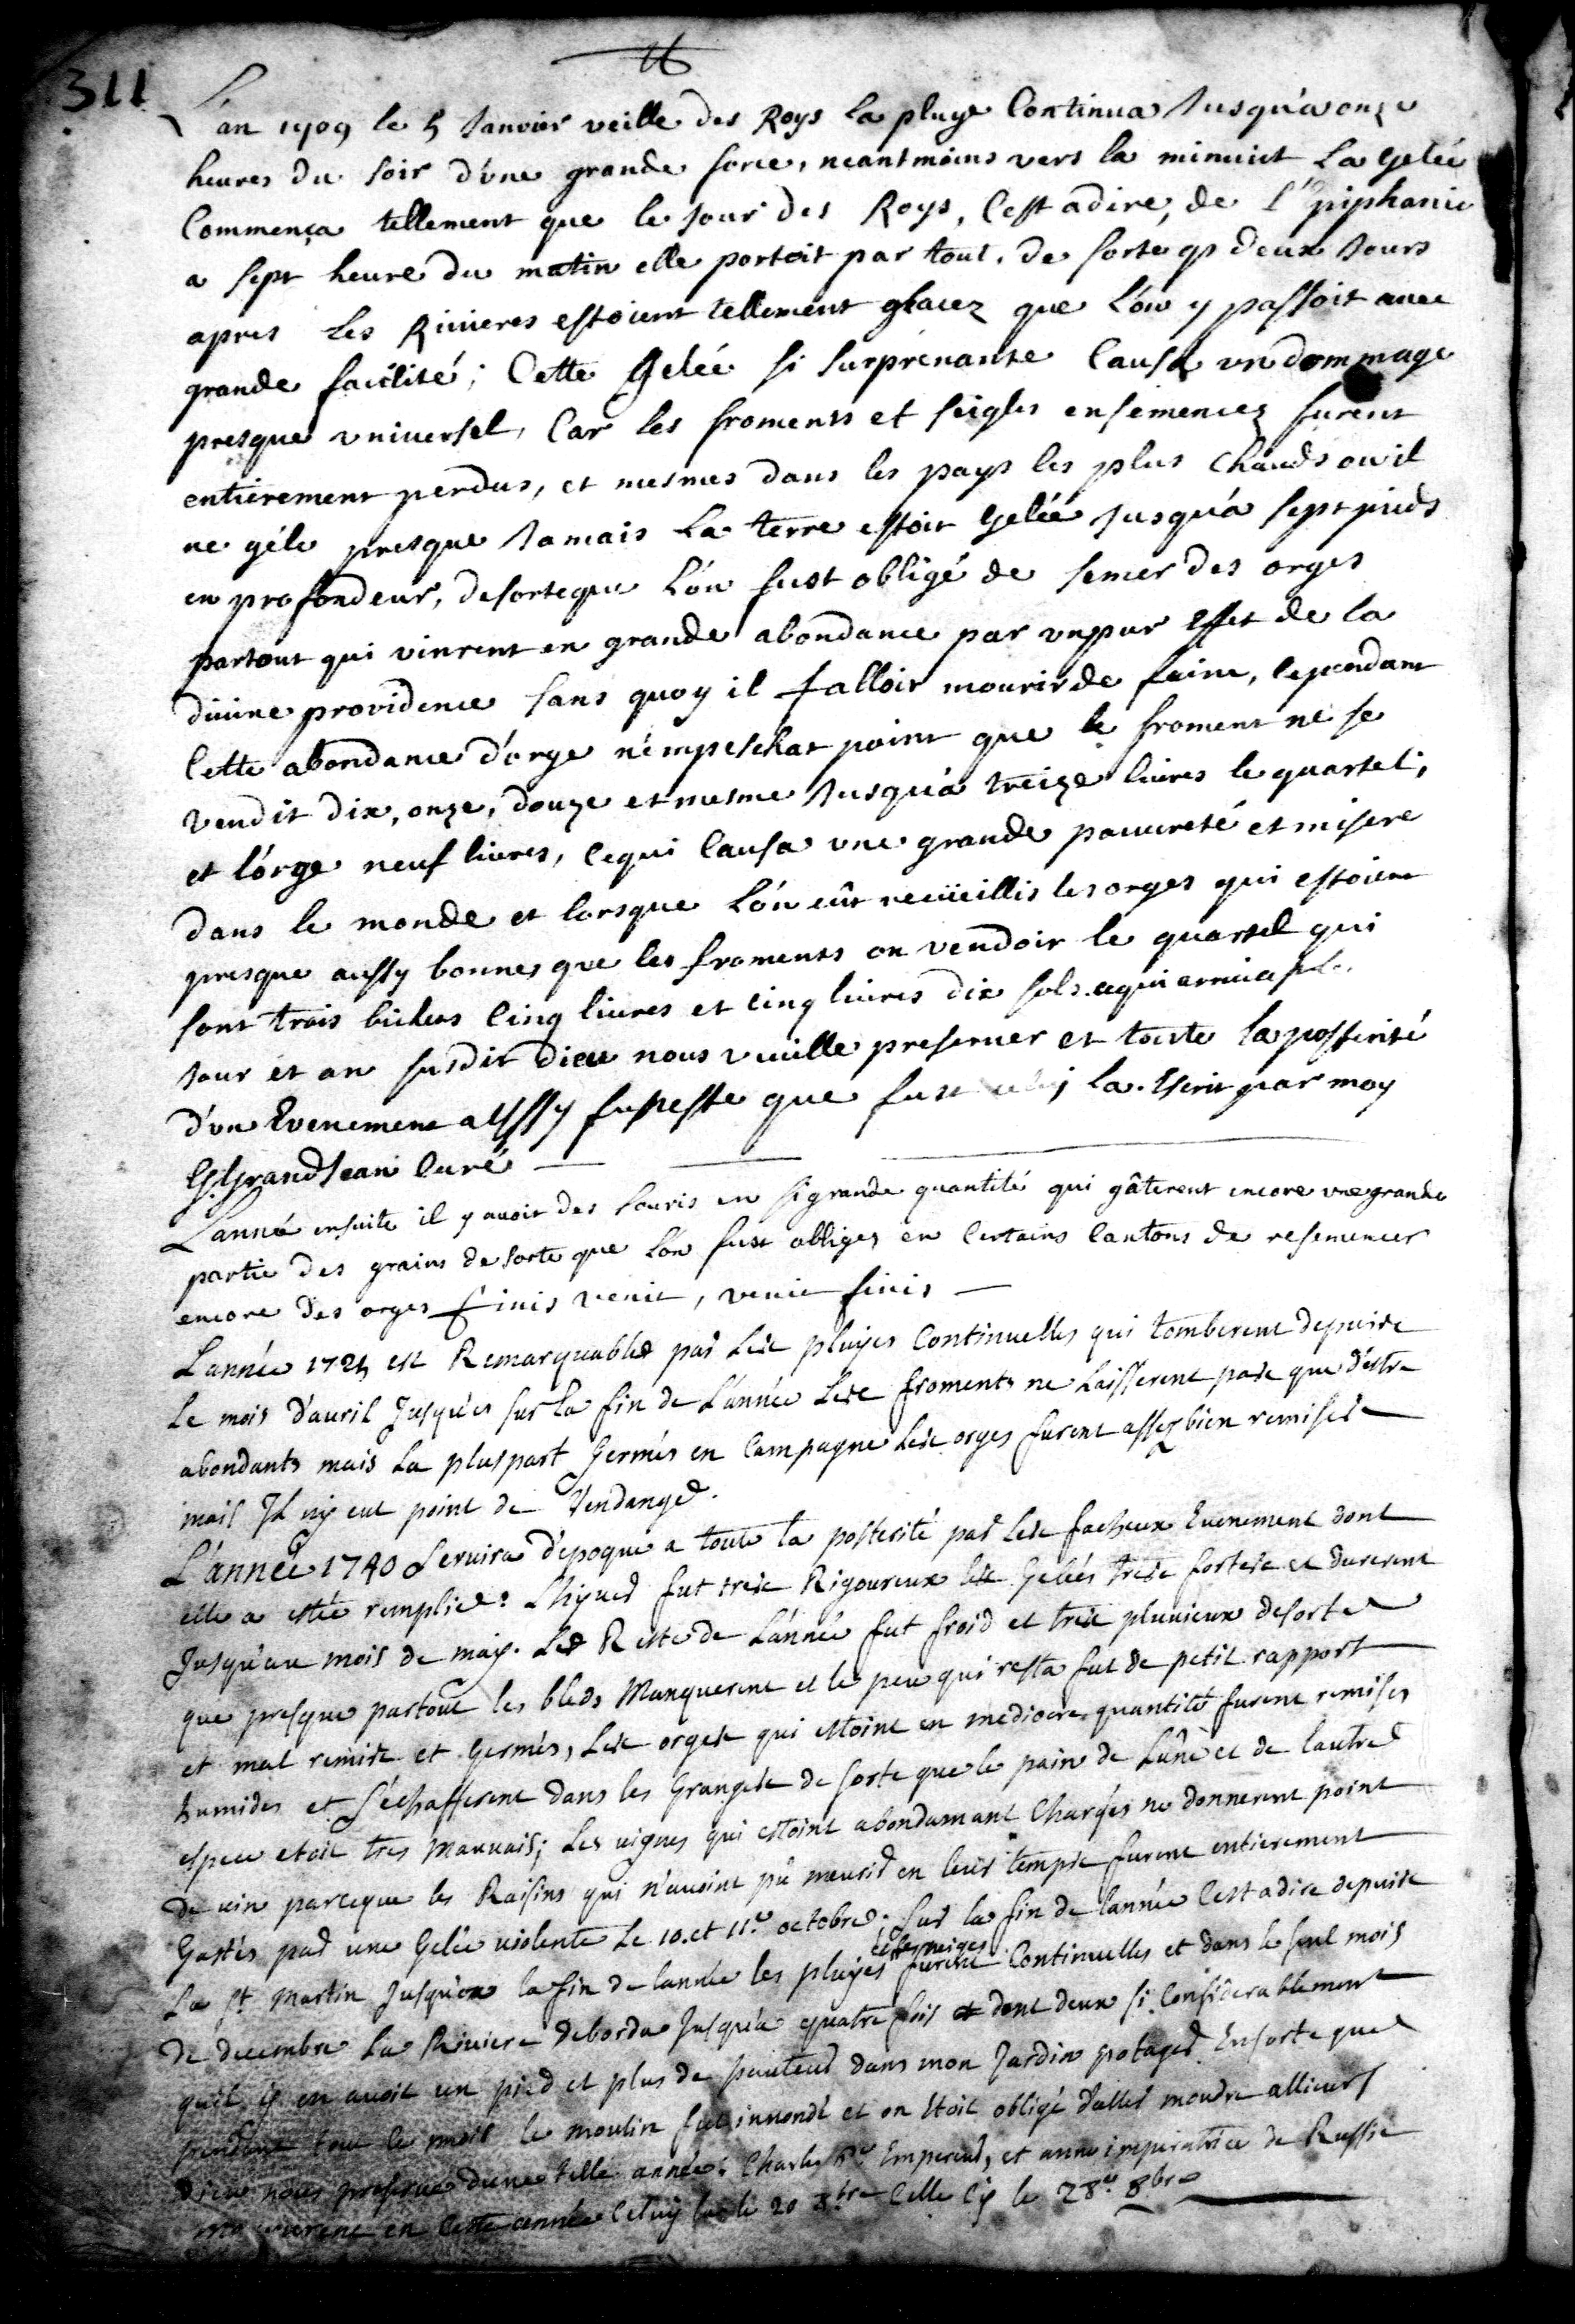 311
L'an 1709 le 5 Januier veille des Roys la pluye Continua Jusqu'a onze
heures du soir d'une grande force, neantmoins vers la minuict la gelée
Commença tellement que le Jour des Roys, C'est adire, de l'Epiphanie
a sept heure du matin elle portoit par tout, de sorte que deux Jours
apres les Riuieres estoient tellement glacez que l'on y passoit auec
grande facilité; Cette Gelée si surprenante Causa un dommage
presque vniuersel, Car les froments et seigles ensemencez furent
entierement perdus, et mesmes dans les pays les plus chauds ou il
ne géle presque Jamais la terre estoit Gelée Jusqu'a sept pieds
en profondeur, desorteque l'on fust obligé de semer des orges
partout qui vinrent en grande abondance par vn pur Effet de la
diuine providence sans quoy il falloit mourir de faim, Cependant
Cette abondance d'orge n'empeschat point que le froment ne se
vendit dix, onze, douze et mesme Jusqu'a treize liures le quartel,
et l'orge neuf liures, Cequi Causa vne grande pauureté et misere
dans le monde et lorsque l'on eût recüeillis les orges qui estoient
presque aussy bonnes que les froments on vendoit le quartel qui
sont trois bichets Cinq liures et Cinq liures dix sols. ce qui arriua
Jour et an susdit dieu nous veuille preseruer et toute la posterité
d'un Evenement aussy funeste que fust la. Escrit par moy
G. GrandJean Curé
L'anné ensuite il y auoit des souris en si grande quantité qui gâterent encore vne grande
partie des grains de sorte que l'on fust obligez en Certains Cantons de resemencer
encore des orges finis venit, venit finis
L'année 1725 est Remarquable par les pluyes Continuelles qui tomberent depuis
le mois d'auril Jusques sur la fin de l'année les froments ne laisserent pas que d'estre
abondants mais la pluspart Germés en Campagne les orges furent assez bien remises
mais Il ny eut point de Vendange.
L'année 1740 seruira d'epoque a toute la posterité par les facheux Euenement dont
elle a estée remplie. L'hyuer fut tres Rigoureux les Gelées tres fortes et durerent
Jusqu'au mois de may. Le Reste de l'année fut froid et tres pluuieux desorte
que presque partout les bleds Manquerent et le peu qui resta fut de petit rapport
et mal remis et Germés, les orges qui estoint en mediocre quantité furent remises
humides et s'échafferent dans les Granges de sorte que le pain de l'une et de l'autre
espece etoit tres Mauuais; Les uignes qui estoint abondamant Chargés ne donnerent point
de uin parceque les Raisins qui n'auoint pû meurir en leur temps furent entierement
Gastés par une Gelée uiolente Le 10. et 11.e octobre. Sur la fin de l'année C'est adire depuis
et les neiges
La St Martin Jusqu'a la fin de l'année les pluyes furent Continuelles et dans le seul mois
de decembre La Riuiere deborda Jusqu'a quatre fois dont deux si Considerablement
qu'il y en auoit un pied et plus de hauteur dans mon Jardin potager. Ensorte que
pendant tout le mois le moulin fut innondé et on Etoit obligé d'aller moudre allieurs
Dieu nous preserue d'une telle année. Charles 6e Empereur, et anne imperatrice de Russie
moururent en Cette année Celuy la le 20 8bre Celle Cy le 28e 8bre